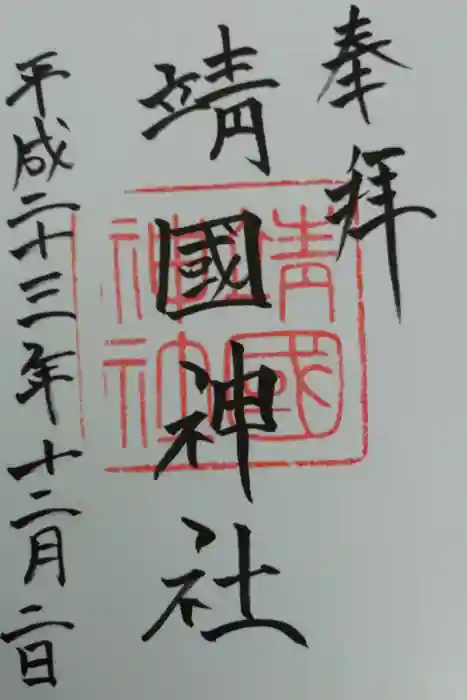 奉拝
靖國神社
靖國
神社
平成二十三年十二月二日